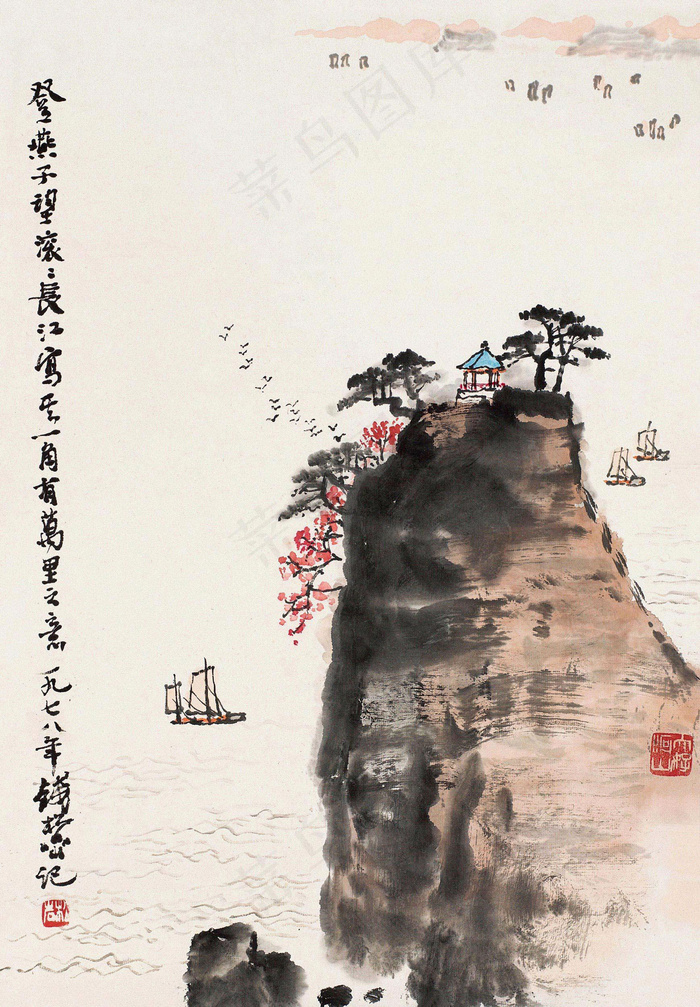 登燕子望滾〻長江寫其一角有萬里之意 一九七八年 錢松喦記
松喦
菜鸟图库